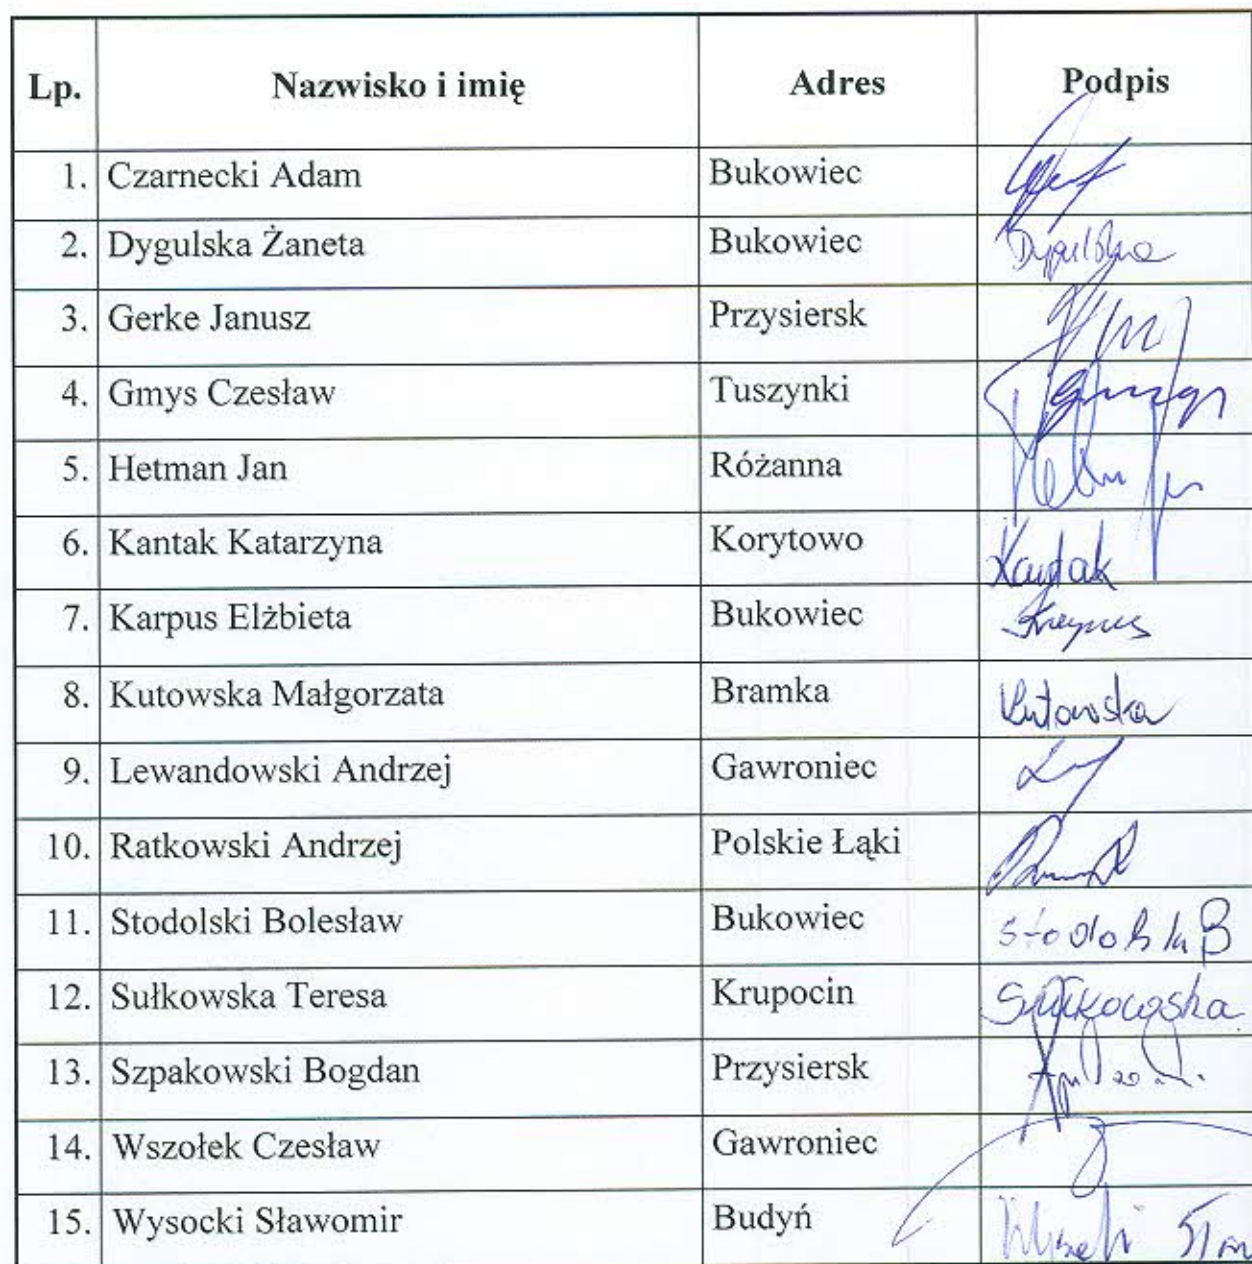 Lp. Nazwisko i imię Adres Podpis
1. Czarnecki Adam Bukowiec
2. Dygulska Żaneta Bukowiec Dygulska
3. Gerke Janusz Przysiersk
4. Gmys Czesław Tuszynki Gmys
5. Hetman Jan Różanna
6. Kantak Katarzyna Korytowo Kantak
7. Karpus Elżbieta Bukowiec Karpus
8. Kutowska Małgorzata Bramka Kutowska
9. Lewandowski Andrzej Gawroniec
10. Ratkowski Andrzej Polskie Łąki
11. Stodolski Bolesław Bukowiec Stodolski B
12. Sułkowska Teresa Krupocin Sułkowska
13. Szpakowski Bogdan Przysiersk
14. Wszołek Czesław Gawroniec
15. Wysocki Sławomir Budyń